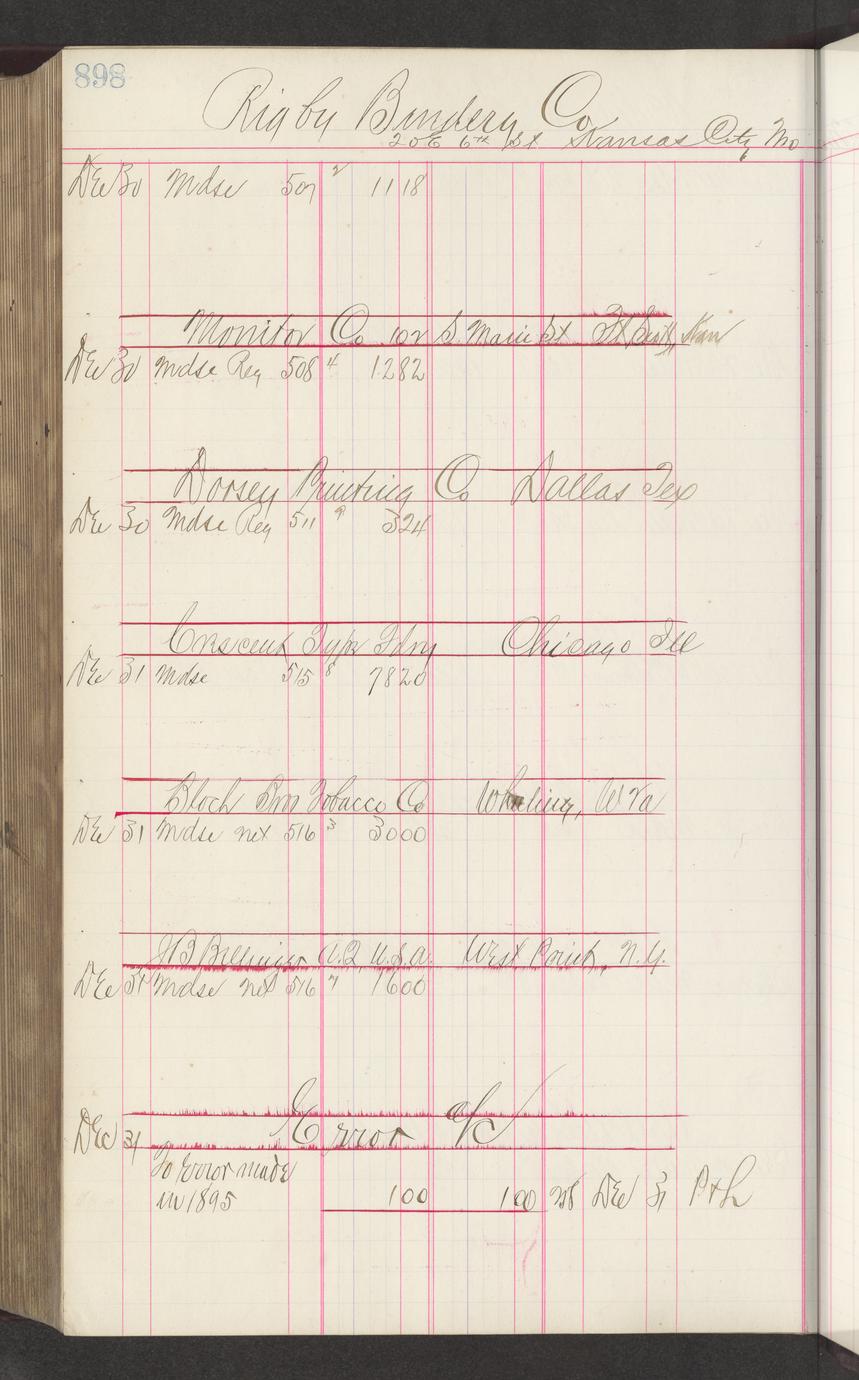 898
Rigby Bindery Co
20 E 6th St Kansas City Mo
Dec 30 Mdse 507 2 11 18
Monitor Co 102 S. Main St Ft Scott, Kan
Dec 30 Mdse Reg 508 4 12 82
Dorsey Printing Co Dallas Tex
Dec 30 Mdse Reg 511 9 3 24
Crescent Type Fdry Chicago Ill
Dec 31 Mdse 515 8 78 20
Bloch Bros Tobacco Co Wheeling, W Va
Dec 31 Mdse net 516 3 30 00
J B Bellinger Q. U.S.A. West Point, N.Y.
Dec 31 Mdse net 516 7 16 00
Error a/c
Dec 31
To Error made
in 1895 1 00 1 00 Dec 31 P+L